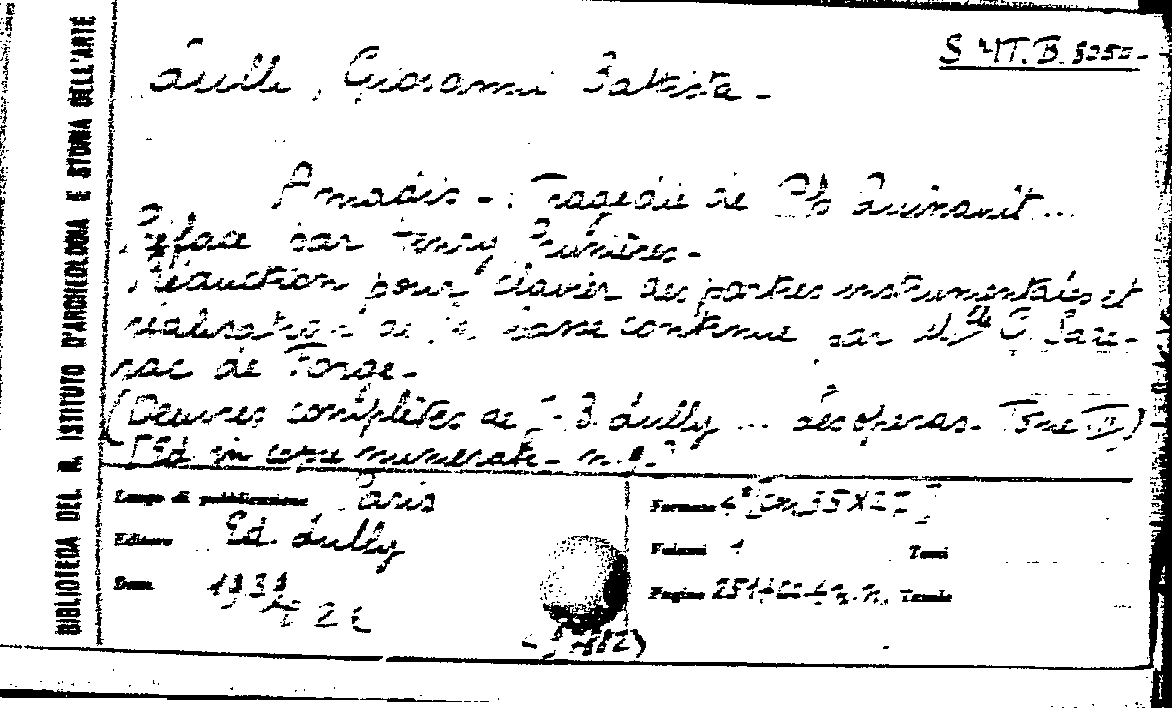 BIBLIOTECA DEL R. ISTITUTO D'ARCHEOLOGIA E STORIA DELL'ARTE
S. MT. B.
Lulli, Giovanni Battista -
Amadis - : Tragédie de Ph Quinault ...
Préface par Henry Prunières -
Réduction pour clavier des parties instrumentales et
réalisation de la basse continue par Mlle C. Saré-
nac de Forge -
(Oeuvres complètes de J-B. Lully ... Les operas. Tome III)
[Ed in copie numerate - n.
Luogo di pubblicazione Paris
Editore Ed. Lully
Data 1939
Formato 4° [cm 35 X 27]
Volumi 1 Tomi
Pagine Tavole